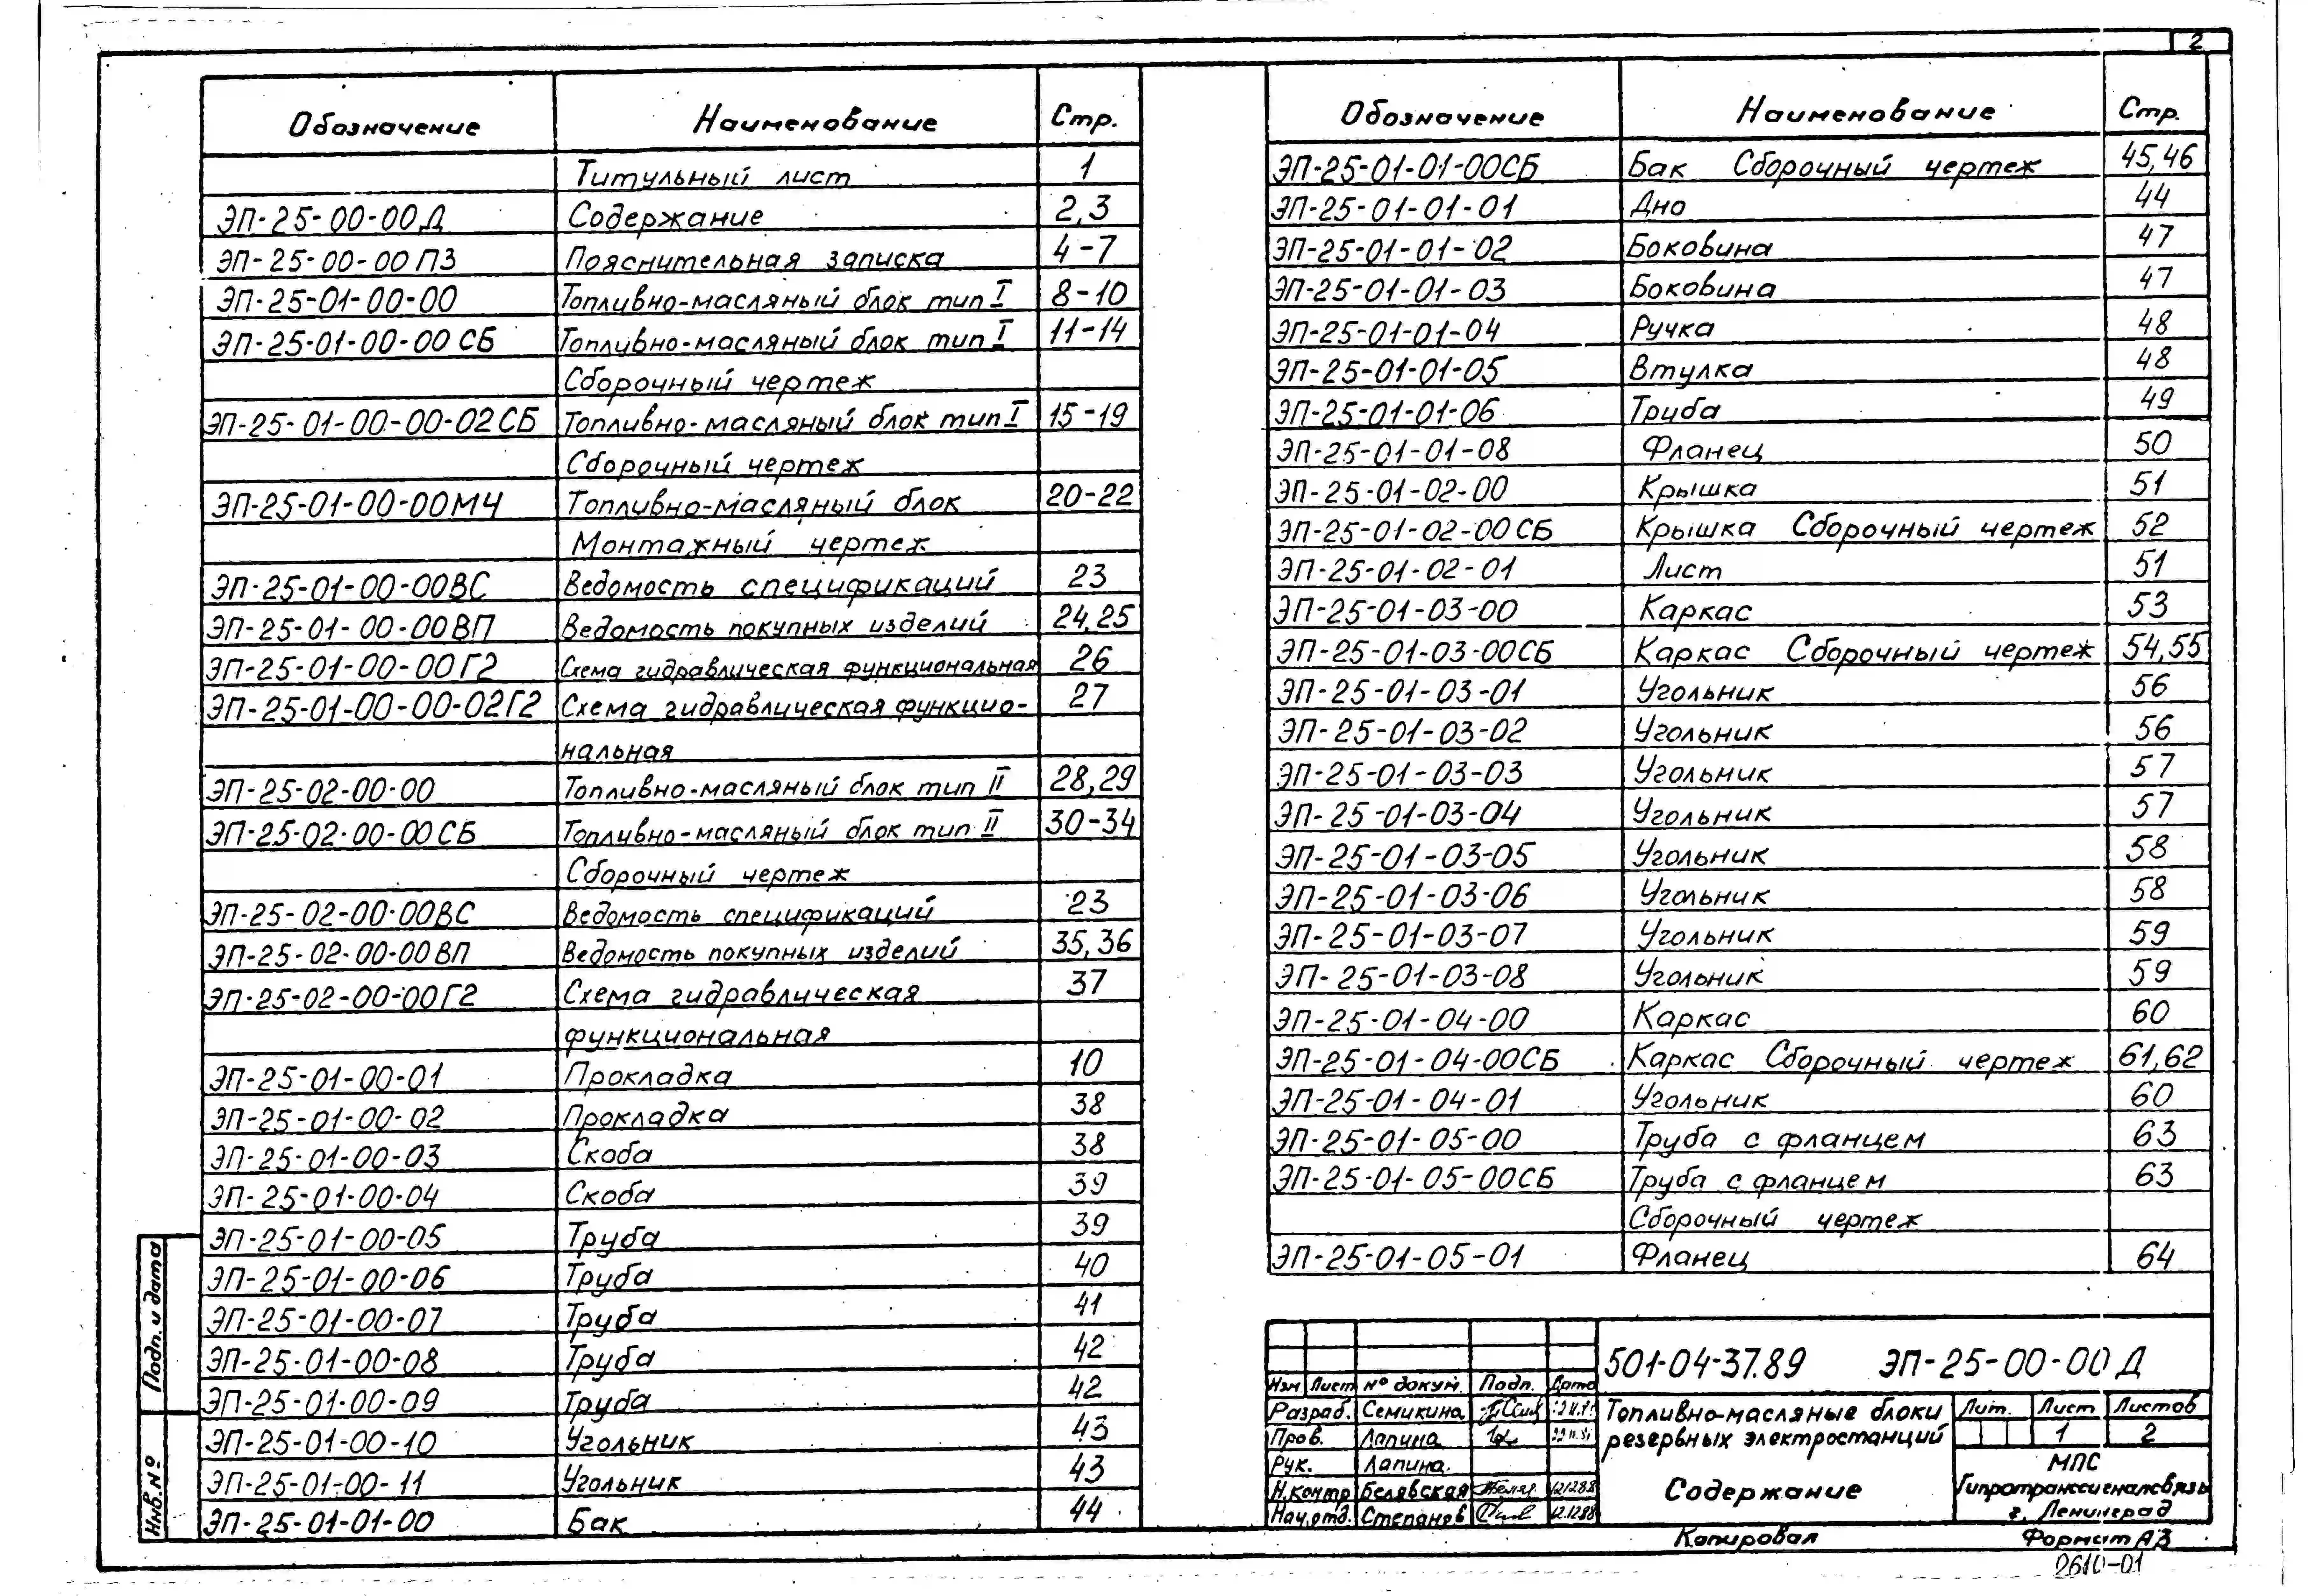 2
Обозначение Наименование Стр.
Титульный лист 1
ЭП-25-00-00Д Содержание 2,3
ЭП-25-00-00ПЗ Пояснительная записка 4-7
ЭП-25-01-00-00 Топливно-масляный блок тип I 8-10
ЭП-25-01-00-00СБ Топливно-масляный блок тип I 11-14
Сборочный чертеж
ЭП-25-01-00-00-02СБ Топливно-масляный блок тип I 15-19
Сборочный чертеж
ЭП-25-01-00-00МЧ Топливно-масляный блок 20-22
Монтажный чертеж
ЭП-25-01-00-00ВС Ведомость спецификаций 23
ЭП-25-01-00-00ВП Ведомость покупных изделий 24,25
ЭП-25-01-00-00Г2 Схема гидравлическая функциональная 26
ЭП-25-01-00-00-02Г2 Схема гидравлическая функцио- 27
нальная
ЭП-25-02-00-00 Топливно-масляный блок тип II 28,29
ЭП-25-02-00-00СБ Топливно-масляный блок тип II 30-34
Сборочный чертеж
ЭП-25-02-00-00ВС Ведомость спецификаций 23
ЭП-25-02-00-00ВП Ведомость покупных изделий 35,36
ЭП-25-02-00-00Г2 Схема гидравлическая 37
функциональная
ЭП-25-01-00-01 Прокладка 10
ЭП-25-01-00-02 Прокладка 38
ЭП-25-01-00-03 Скоба 38
ЭП-25-01-00-04 Скоба 39
ЭП-25-01-00-05 Труба 39
ЭП-25-01-00-06 Труба 40
ЭП-25-01-00-07 Труба 41
ЭП-25-01-00-08 Труба 42
ЭП-25-01-00-09 Труба 42
ЭП-25-01-00-10 Угольник 43
ЭП-25-01-00-11 Угольник 43
ЭП-25-01-01-00 Бак 44
Обозначение Наименование Стр.
ЭП-25-01-01-00СБ Бак Сборочный чертеж 45,46
ЭП-25-01-01-01 Дно 44
ЭП-25-01-01-02 Боковина 47
ЭП-25-01-01-03 Боковина 47
ЭП-25-01-01-04 Ручка 48
ЭП-25-01-01-05 Втулка 48
ЭП-25-01-01-06 Труба 49
ЭП-25-01-01-08 Фланец 50
ЭП-25-01-02-00 Крышка 51
ЭП-25-01-02-00СБ Крышка Сборочный чертеж 52
ЭП-25-01-02-01 Лист 51
ЭП-25-01-03-00 Каркас 53
ЭП-25-01-03-00СБ Каркас Сборочный чертеж 54,55
ЭП-25-01-03-01 Угольник 56
ЭП-25-01-03-02 Угольник 56
ЭП-25-01-03-03 Угольник 57
ЭП-25-01-03-04 Угольник 57
ЭП-25-01-03-05 Угольник 58
ЭП-25-01-03-06 Угольник 58
ЭП-25-01-03-07 Угольник 59
ЭП-25-01-03-08 Угольник 59
ЭП-25-01-04-00 Каркас 60
ЭП-25-01-04-00СБ Каркас Сборочный чертеж 61,62
ЭП-25-01-04-01 Угольник 60
ЭП-25-01-05-00 Труба с фланцем 63
ЭП-25-01-05-00СБ Труба с фланцем 63
Сборочный чертеж
ЭП-25-01-05-01 Фланец 64
Подп. и дата
Инв. №
501-04-37.89 ЭП-25-00-00Д
Изм Лист № докум. Подп. Дата
Разраб. Семикина
Пров. Лапина
Рук. Лапина
Н.контр Белявская 121288
Нач.отд. Степанов 12.1288
Топливно-масляные блоки
резервных электростанций
Содержание
Лит. Лист Листов
1 2
МПС
Гипротранссигналсвязь
г. Ленинград
Копировал Формат А3
2610-01